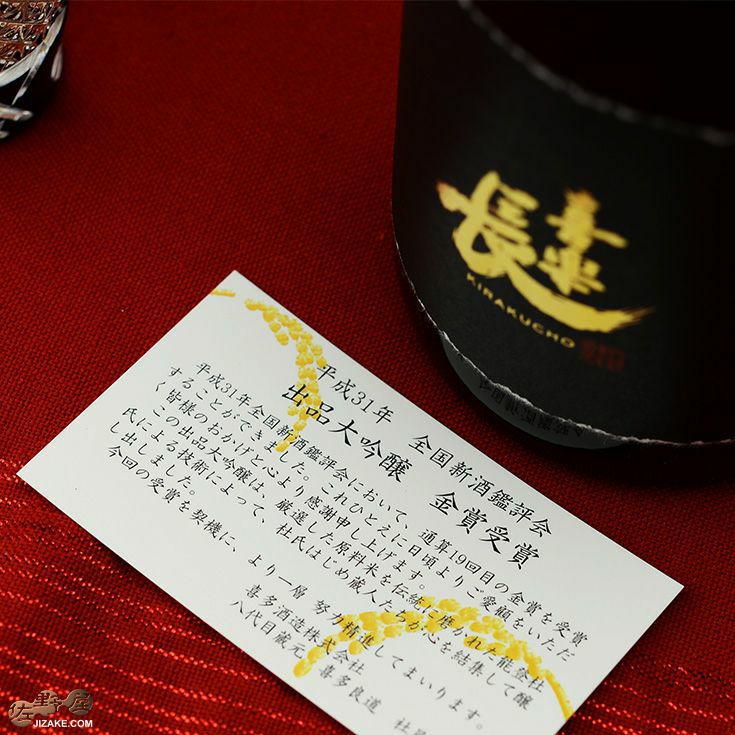 喜楽長
KIRAKUCHO
平成31年　全国新酒鑑評会
出品大吟醸　金賞受賞
平成31年全国新酒鑑評会において、通算19回目の金賞を受賞
することができました。これひとえに日頃よりご愛顧をいただ
く皆様のおかげと心より感謝申し上げます。
この出品大吟醸は、厳選した原料米を伝統に磨かれた能登杜
氏による技術によって、杜氏はじめ蔵人たちが心を結集して醸
し出しました。
今回の受賞を契機に、より一層 努力精進してまいります。
喜多酒造株式会社
八代目蔵元　喜多良道　社員
佐野屋
JIZAKE.COM